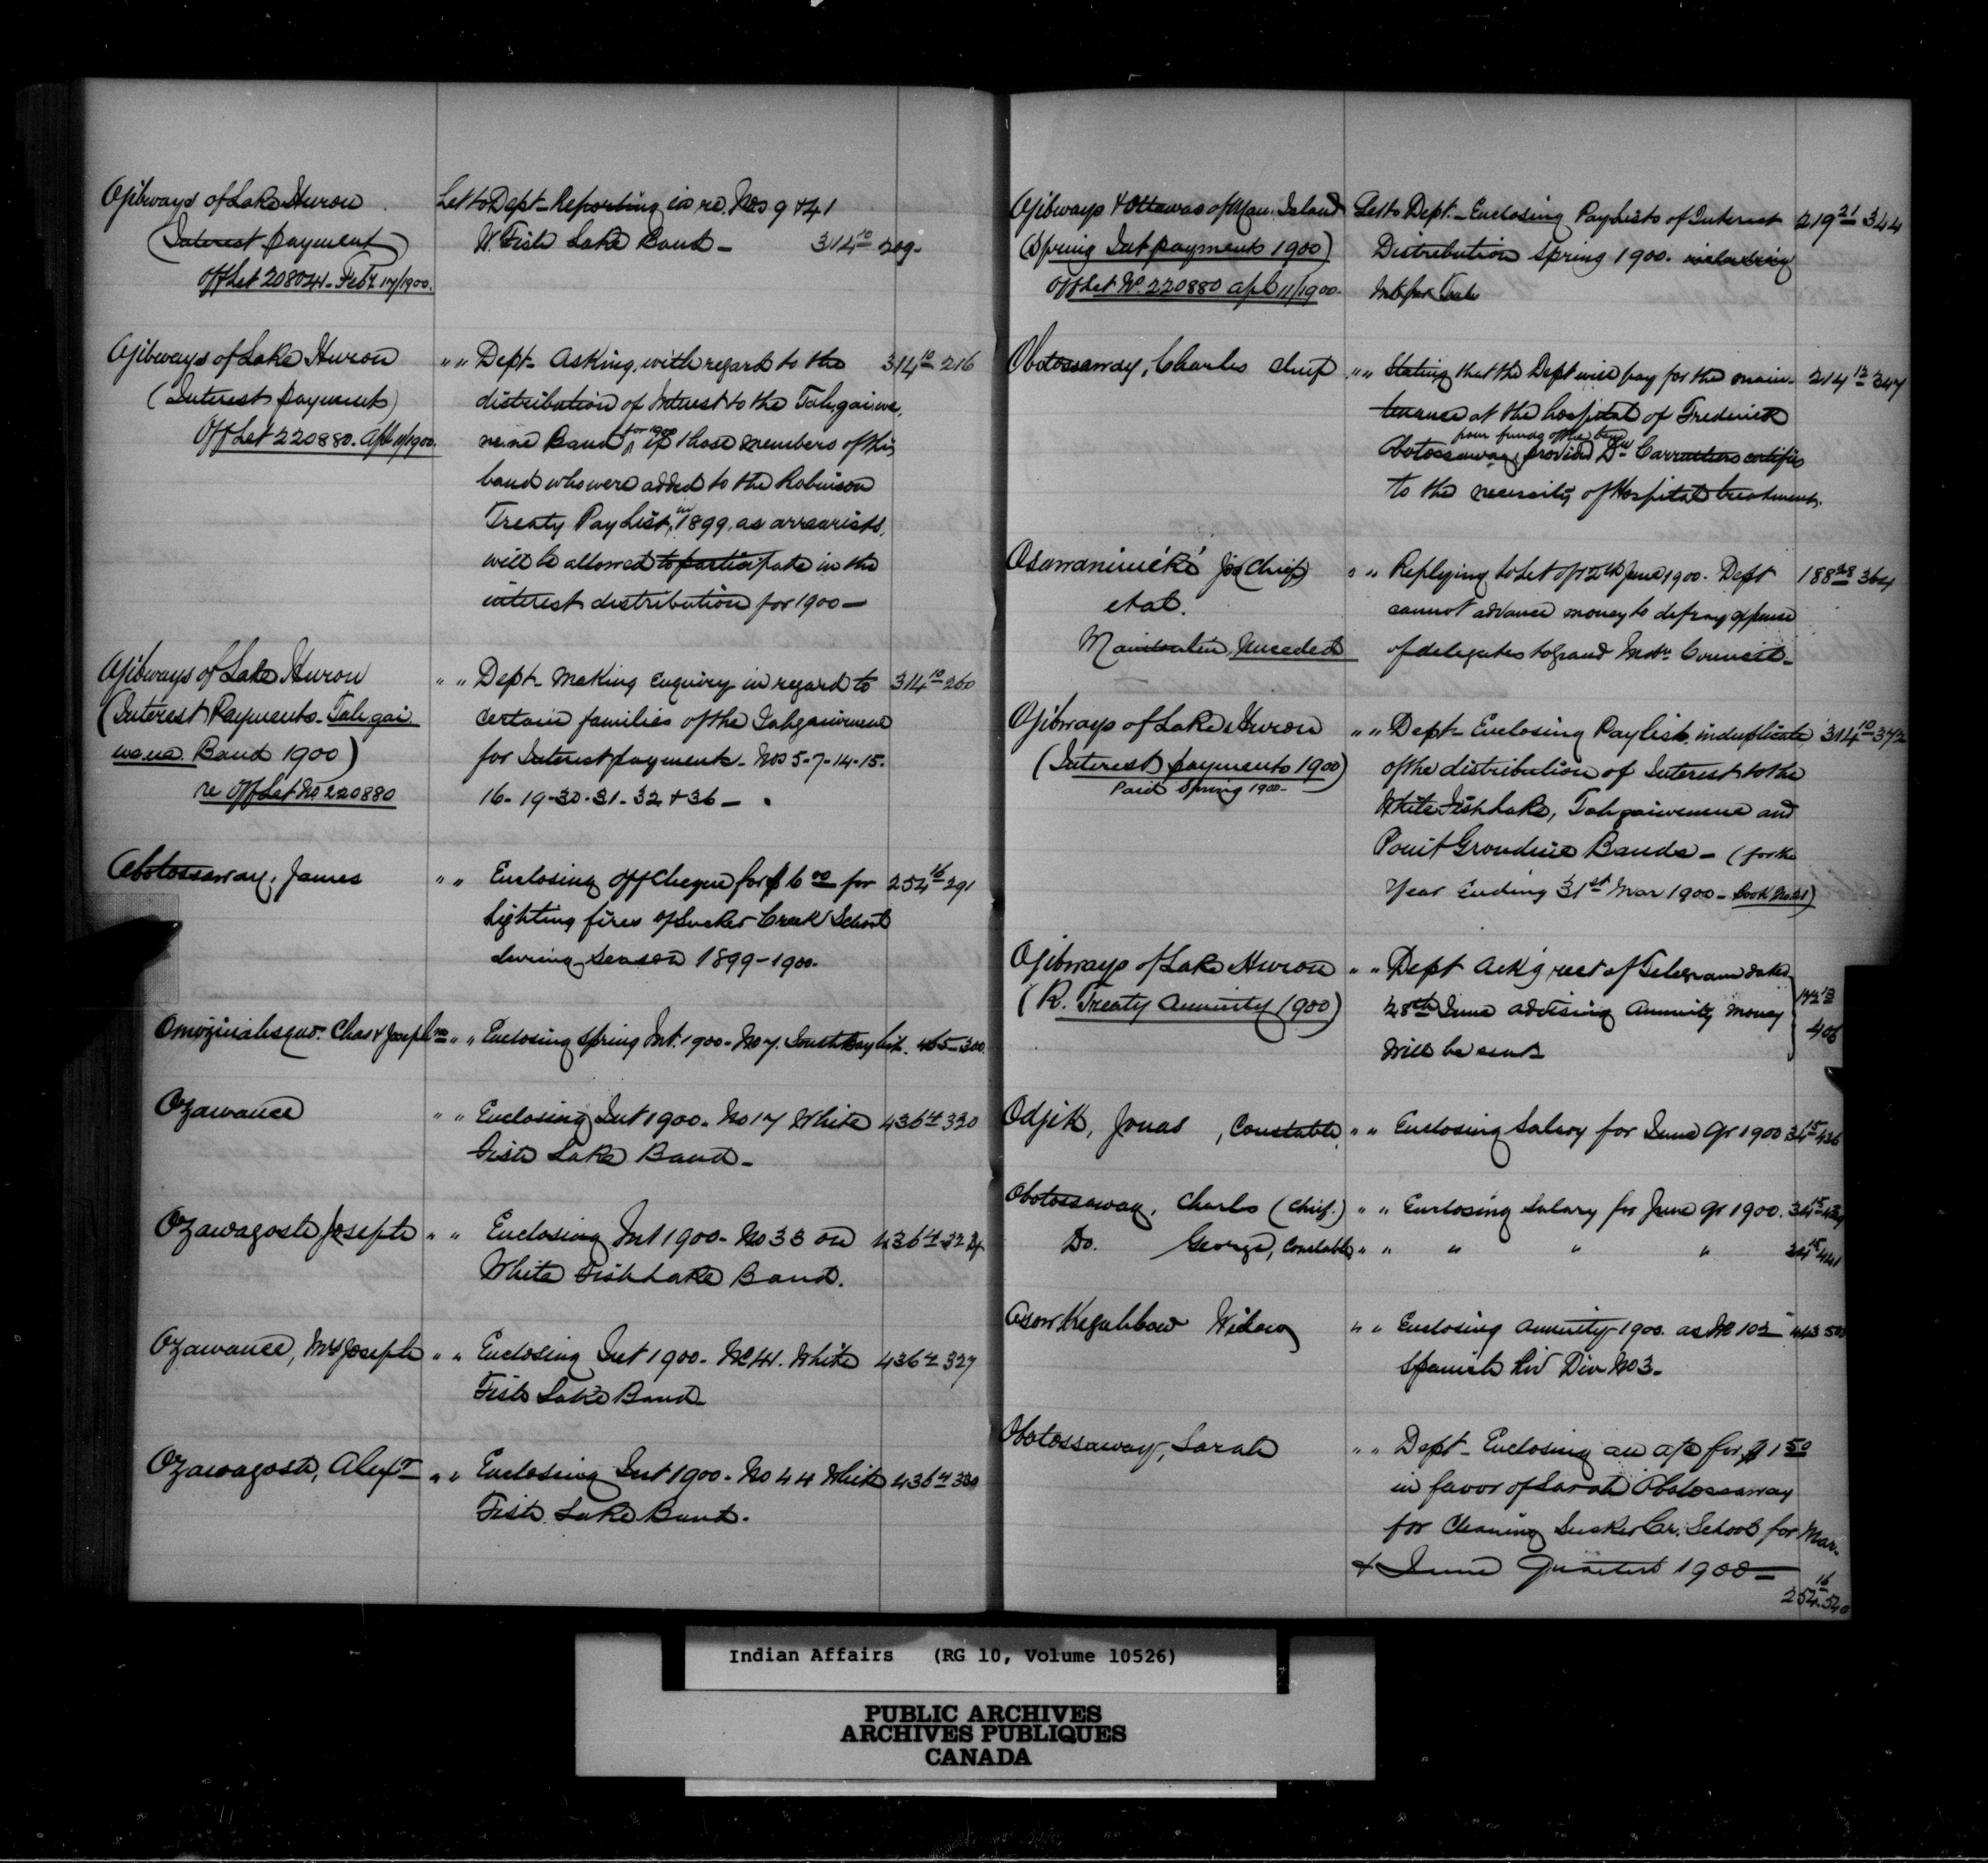 Ojibways of Lake Huron Let to Dept - Reporting in re. Nos 9 & 41
(Interest payment) W. Fish Lake Band - 314 10 209.
Off Let 208024 - Feby 17/1900.
Ojibways of Lake Huron " " Dept - Asking, with regard to the 314 10 216
(Interest payment) distribution of Interest to the Tah.gai.we.
Off Let 220880. Apl 11/1900. ne.ne Band for 1900 if those members of this
band who were added to the Robinson
Treaty Pay List, in 1899, as arrearists,
will be allowed to participate in the
interest distribution for 1900 -
Ojibways of Lake Huron " " Dept - Making Enquiry in regard to 314 10 260
(Interest Payments - Tah.gai. certain families of the Tahgaiwenene
we.ne. Band 1900) for Interest payment - Nos 5-7-14-15.
re Off Let No 220880 16-19-30-31-32 & 36 -
Abotossaway, James " " Enclosing Off Cheque for $6 00 for 254 16 291
Lighting fires of Sucker Creek School
during season 1899-1900.
Chas & Joseph " " Enclosing Spring Int. 1900 - No 7. South Bay list. 465 300
Ozawance " " Enclosing Int 1900 - No 17 White 436 4 320
Fish Lake Band -
Ozawagosh Joseph " " Enclosing Int 1900 - No 33 on 436 4 324
White Fish Lake Band.
Ozawance, Mrs Joseph " " Enclosing Int 1900 - No 41. White 436 4 327
Fish Lake Band -
Ozawagosh, Alexr " " Enclosing Int 1900 - No 44 White 436 4 330
Fish Lake Band.
Ojibways & Ottawas of Man. Island Let to Dept. - Enclosing Pay Lists of Interest 219 21 344
(Spring Int payments 1900) Distribution Spring 1900. including
Off Let No. 220880 Apl 11/1900.
Obotossaway, Charles Chief " " Stating that the Dept will pay for the main- 214 12 347
tenance at the hospital of Frederick
from funds of the band
Obotossaway, provided Dr Carruthers certifies
to the necessity of Hospital treatment.
Osawanimiké Jos (Chief) " " Replying to Let of 12th June 1900. Dept 188 28 364
et al. cannot advance money to defray expense
Manitoulin Unceded of delegates to Grand Indn Council -
Ojibways of Lake Huron " " Dept - Enclosing Paylist, in duplicate, 314 10 372
(Interest payments 1900) of the distribution of Interest to the
Paid Spring 1900 - White Fish Lake, Tahgaiwenene and
Point Grondine Bands - (for the
Year Ending 31st Mar 1900 - Book No 21)
Ojibways of Lake Huron " " Dept Ack'g rect of Telegram dated
(R. Treaty Annuity 1900) 28th June advising Annuity money 406
will be sent
Odjik, Jonas, Constable, " " Enclosing Salary for June Qr 1900 34 15 436
Obotossaway, Charles (Chief.) " " Enclosing Salary for June Qr 1900. 34 15
Do. George, Constable " " " " " 34 15 441
Widow " " Enclosing Annuity 1900. as No 102
Spanish Riv Div No 3 -
Obotossaway, Sarah " " Dept - Enclosing an a/c for $1 50
in favor of Sarah Obotossaway
for Cleaning Sucker Cr. School for Mar.
& June Quarters 1900 -
254 16 540
Indian Affairs (RG 10, Volume 10526)
PUBLIC ARCHIVES
ARCHIVES PUBLIQUES
CANADA